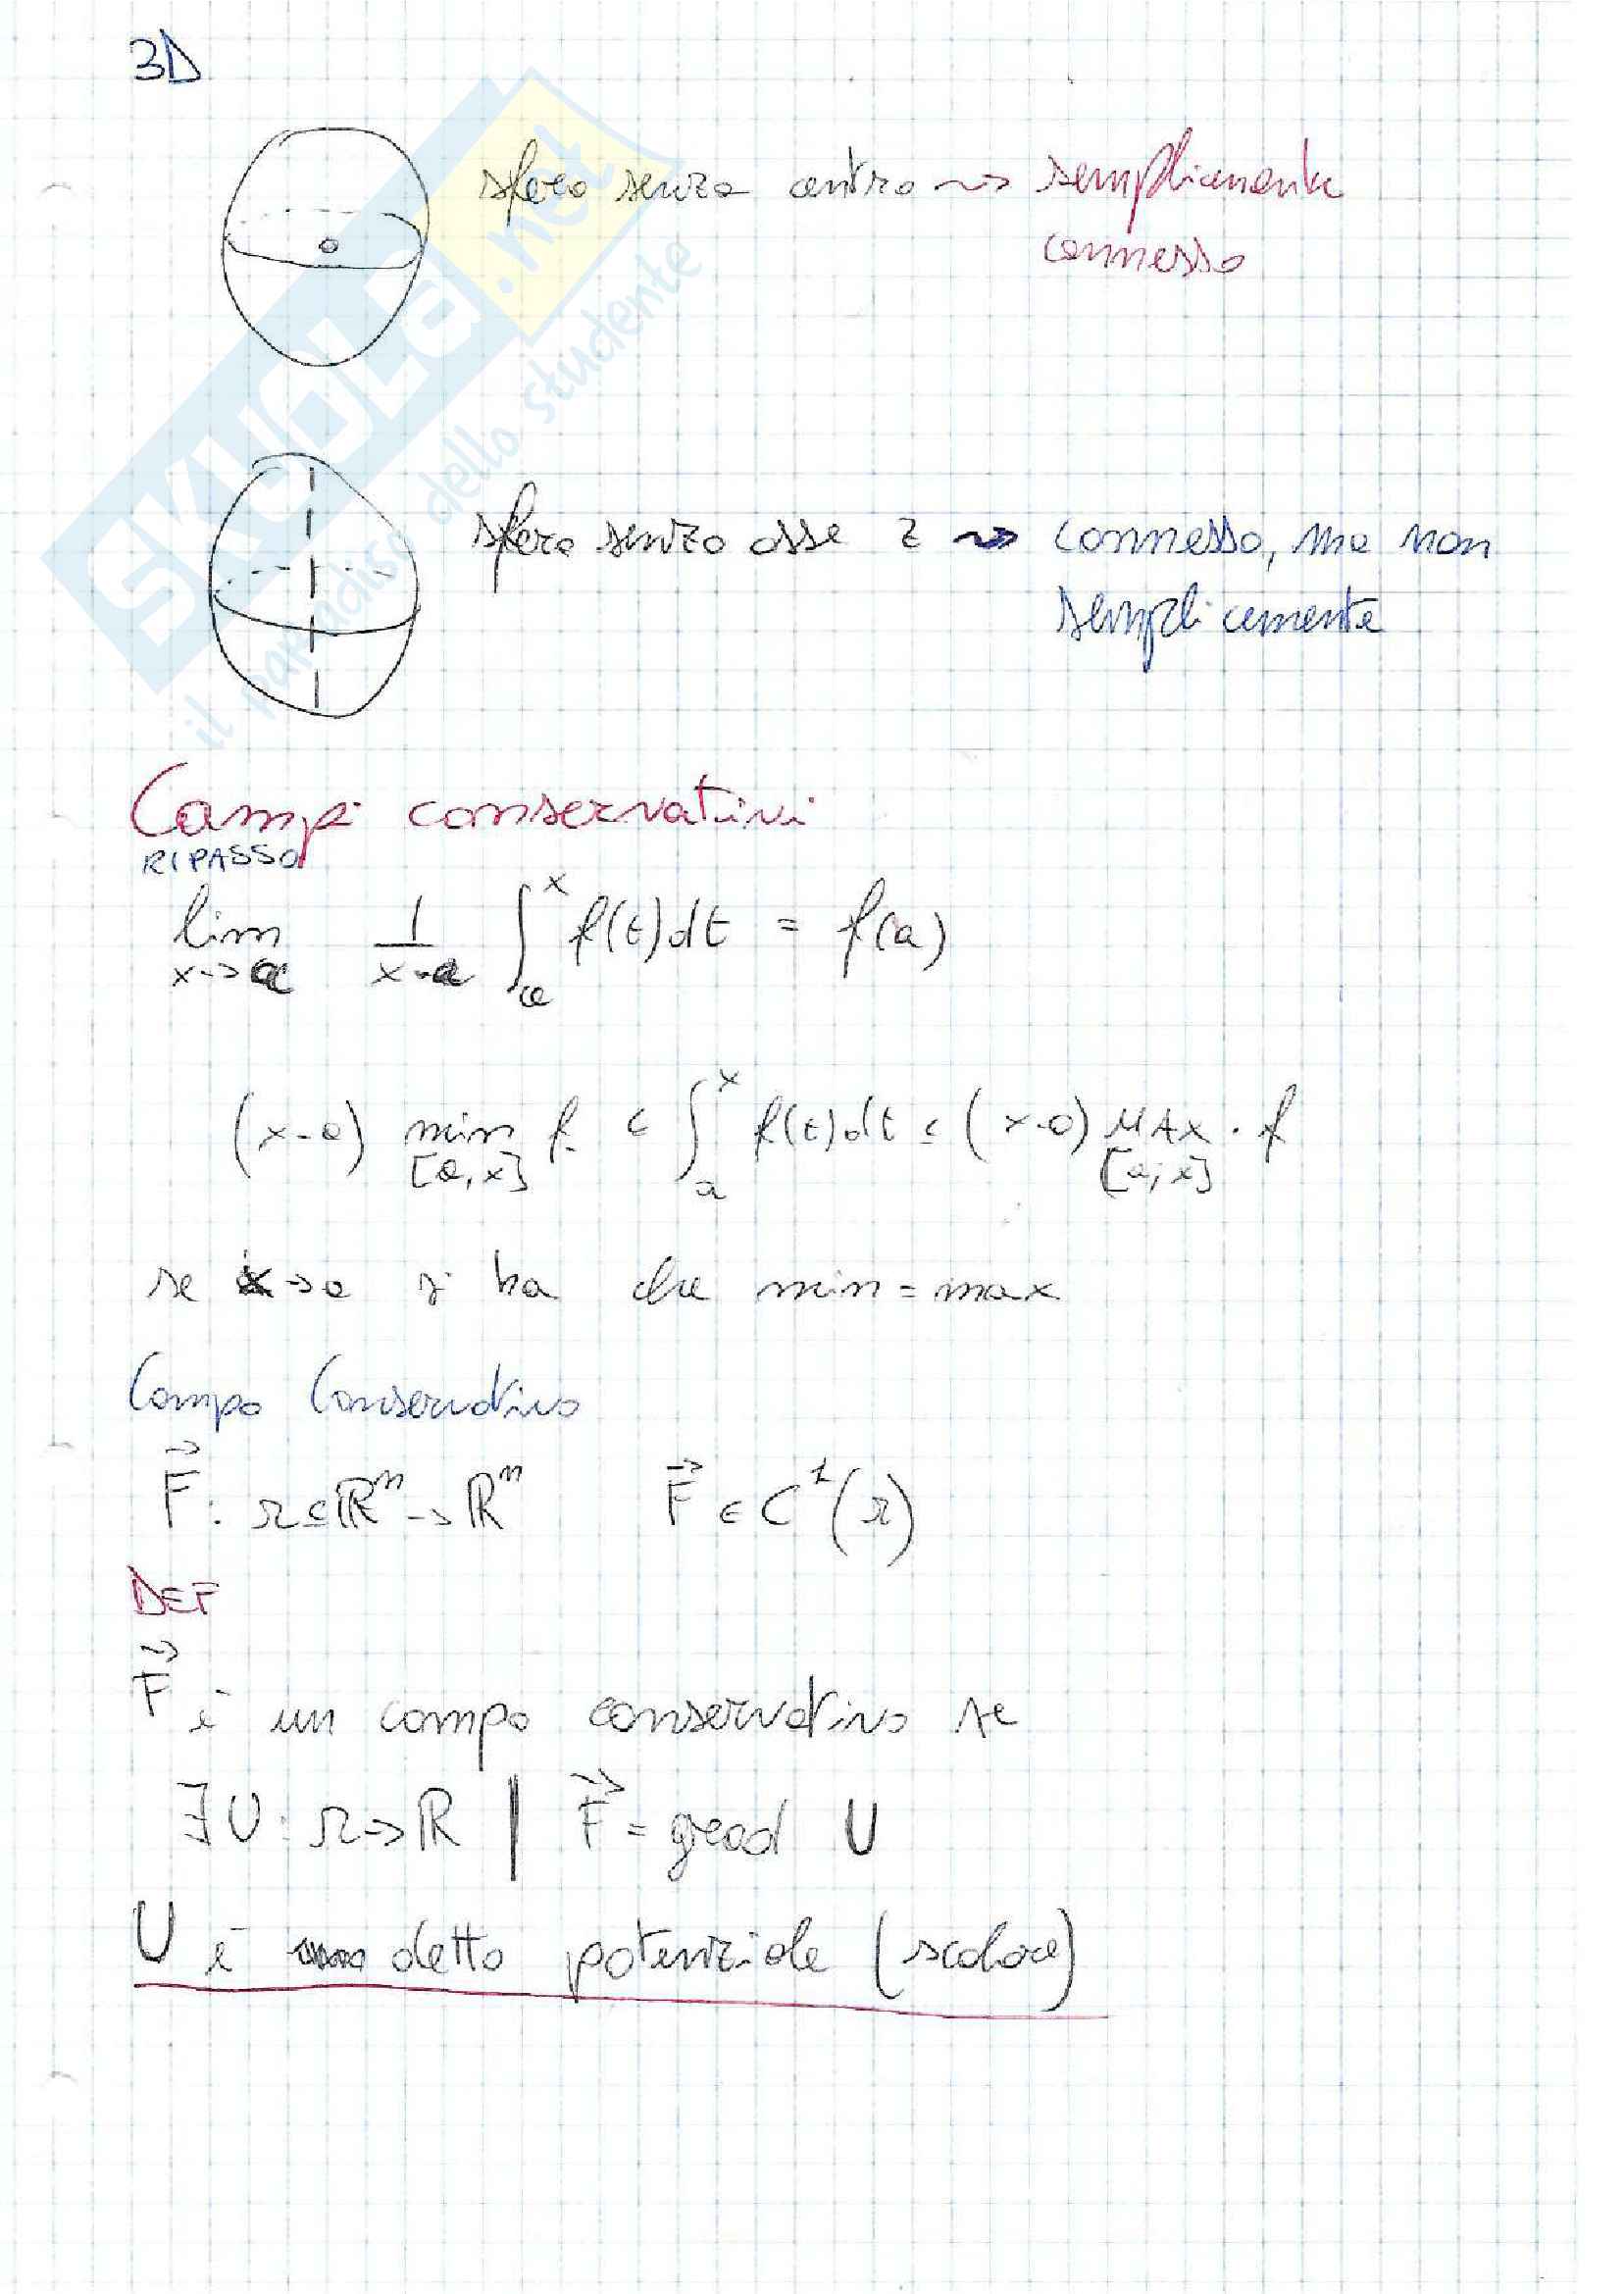 3D
sfera senza centro ⇝ semplicemente
connesso
sfera senza asse z ⇝ connesso, ma non
semplicemente
Campi conservativi
RIPASSO
lim x→a 1/(x-a) ∫_a^x f(t)dt = f(a)
(x-a) min [a,x] f ≤ ∫_a^x f(t)dt ≤ (x-a) MAX [a;x] · f
se x→a si ha che min = max
Campo Conservativo
F⃗ : Ω⊆ℝⁿ → ℝⁿ F⃗ ∈ C¹(Ω)
DEF
F⃗ è un campo conservativo se
∃ U : Ω→ℝ | F⃗ = grad U
U è detto potenziale (scalare)
SKUOLA.net
il paradiso dello studente